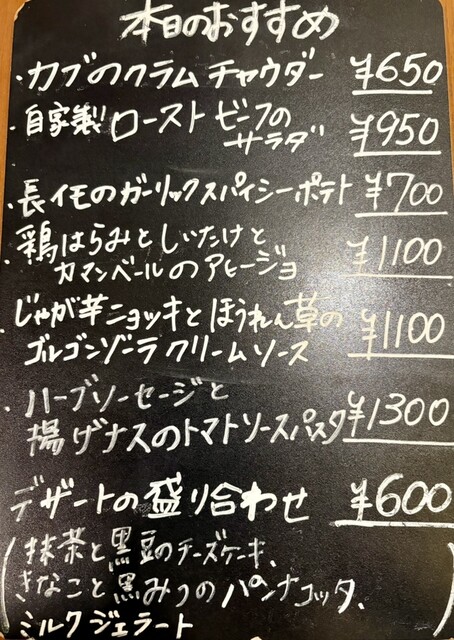 本日のおすすめ
・カブのクラムチャウダー ¥650
・自家製ローストビーフの
サラダ ¥950
・長イモのガーリックスパイシーポテト ¥700
・鶏はらみとしいたけと
カマンベールのアヒージョ ¥1100
・じゃが芋ニョッキとほうれん草の
ゴルゴンゾーラクリームソース ¥1100
・ハーブソーセージと
揚げナスのトマトソースパスタ ¥1300
デザートの盛り合わせ ¥600
(抹茶と黒豆のチーズケーキ、
きなこと黒みつのパンナコッタ、
ミルクジェラート)